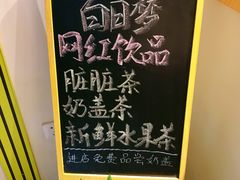 白日梦
网红饮品
脏脏茶
奶盖茶
新鲜水果茶
进店免费品尝奶盖